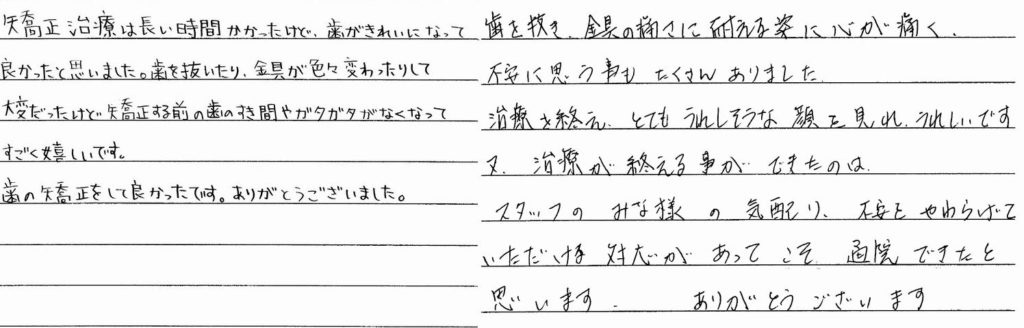 矯正治療は長い時間かかったけど、歯がきれいになって
良かったと思いました。歯を抜いたり、金具が色々変わったりして
大変だったけど矯正する前の歯のすき間やガタガタがなくなって
すごく嬉しいです。
歯の矯正をして良かったです。ありがとうございました。
歯を抜き、金具の痛さに耐える姿に心が痛く、
不安に思う事も たくさん ありました
治療を終え、とても うれしそうな 顔を見れ、うれしいです
又、治療が 終える事が できたのは、
スタッフの みな様 の 気配り、不安を やわらげて
いただける 対応が あって こそ 通院 できたと
思います。 ありがとう ございます